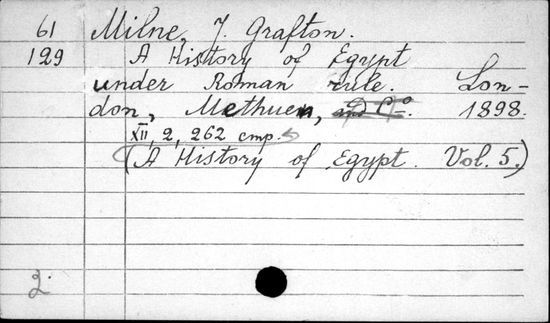 61 Milne, J. Grafton.
129 A History of Egypt
under Roman rule. Lon-
don, Methuen, and C°. 1898.
XII, 2, 262 стр.
(A History of Egypt. Vol. 5.)
2.